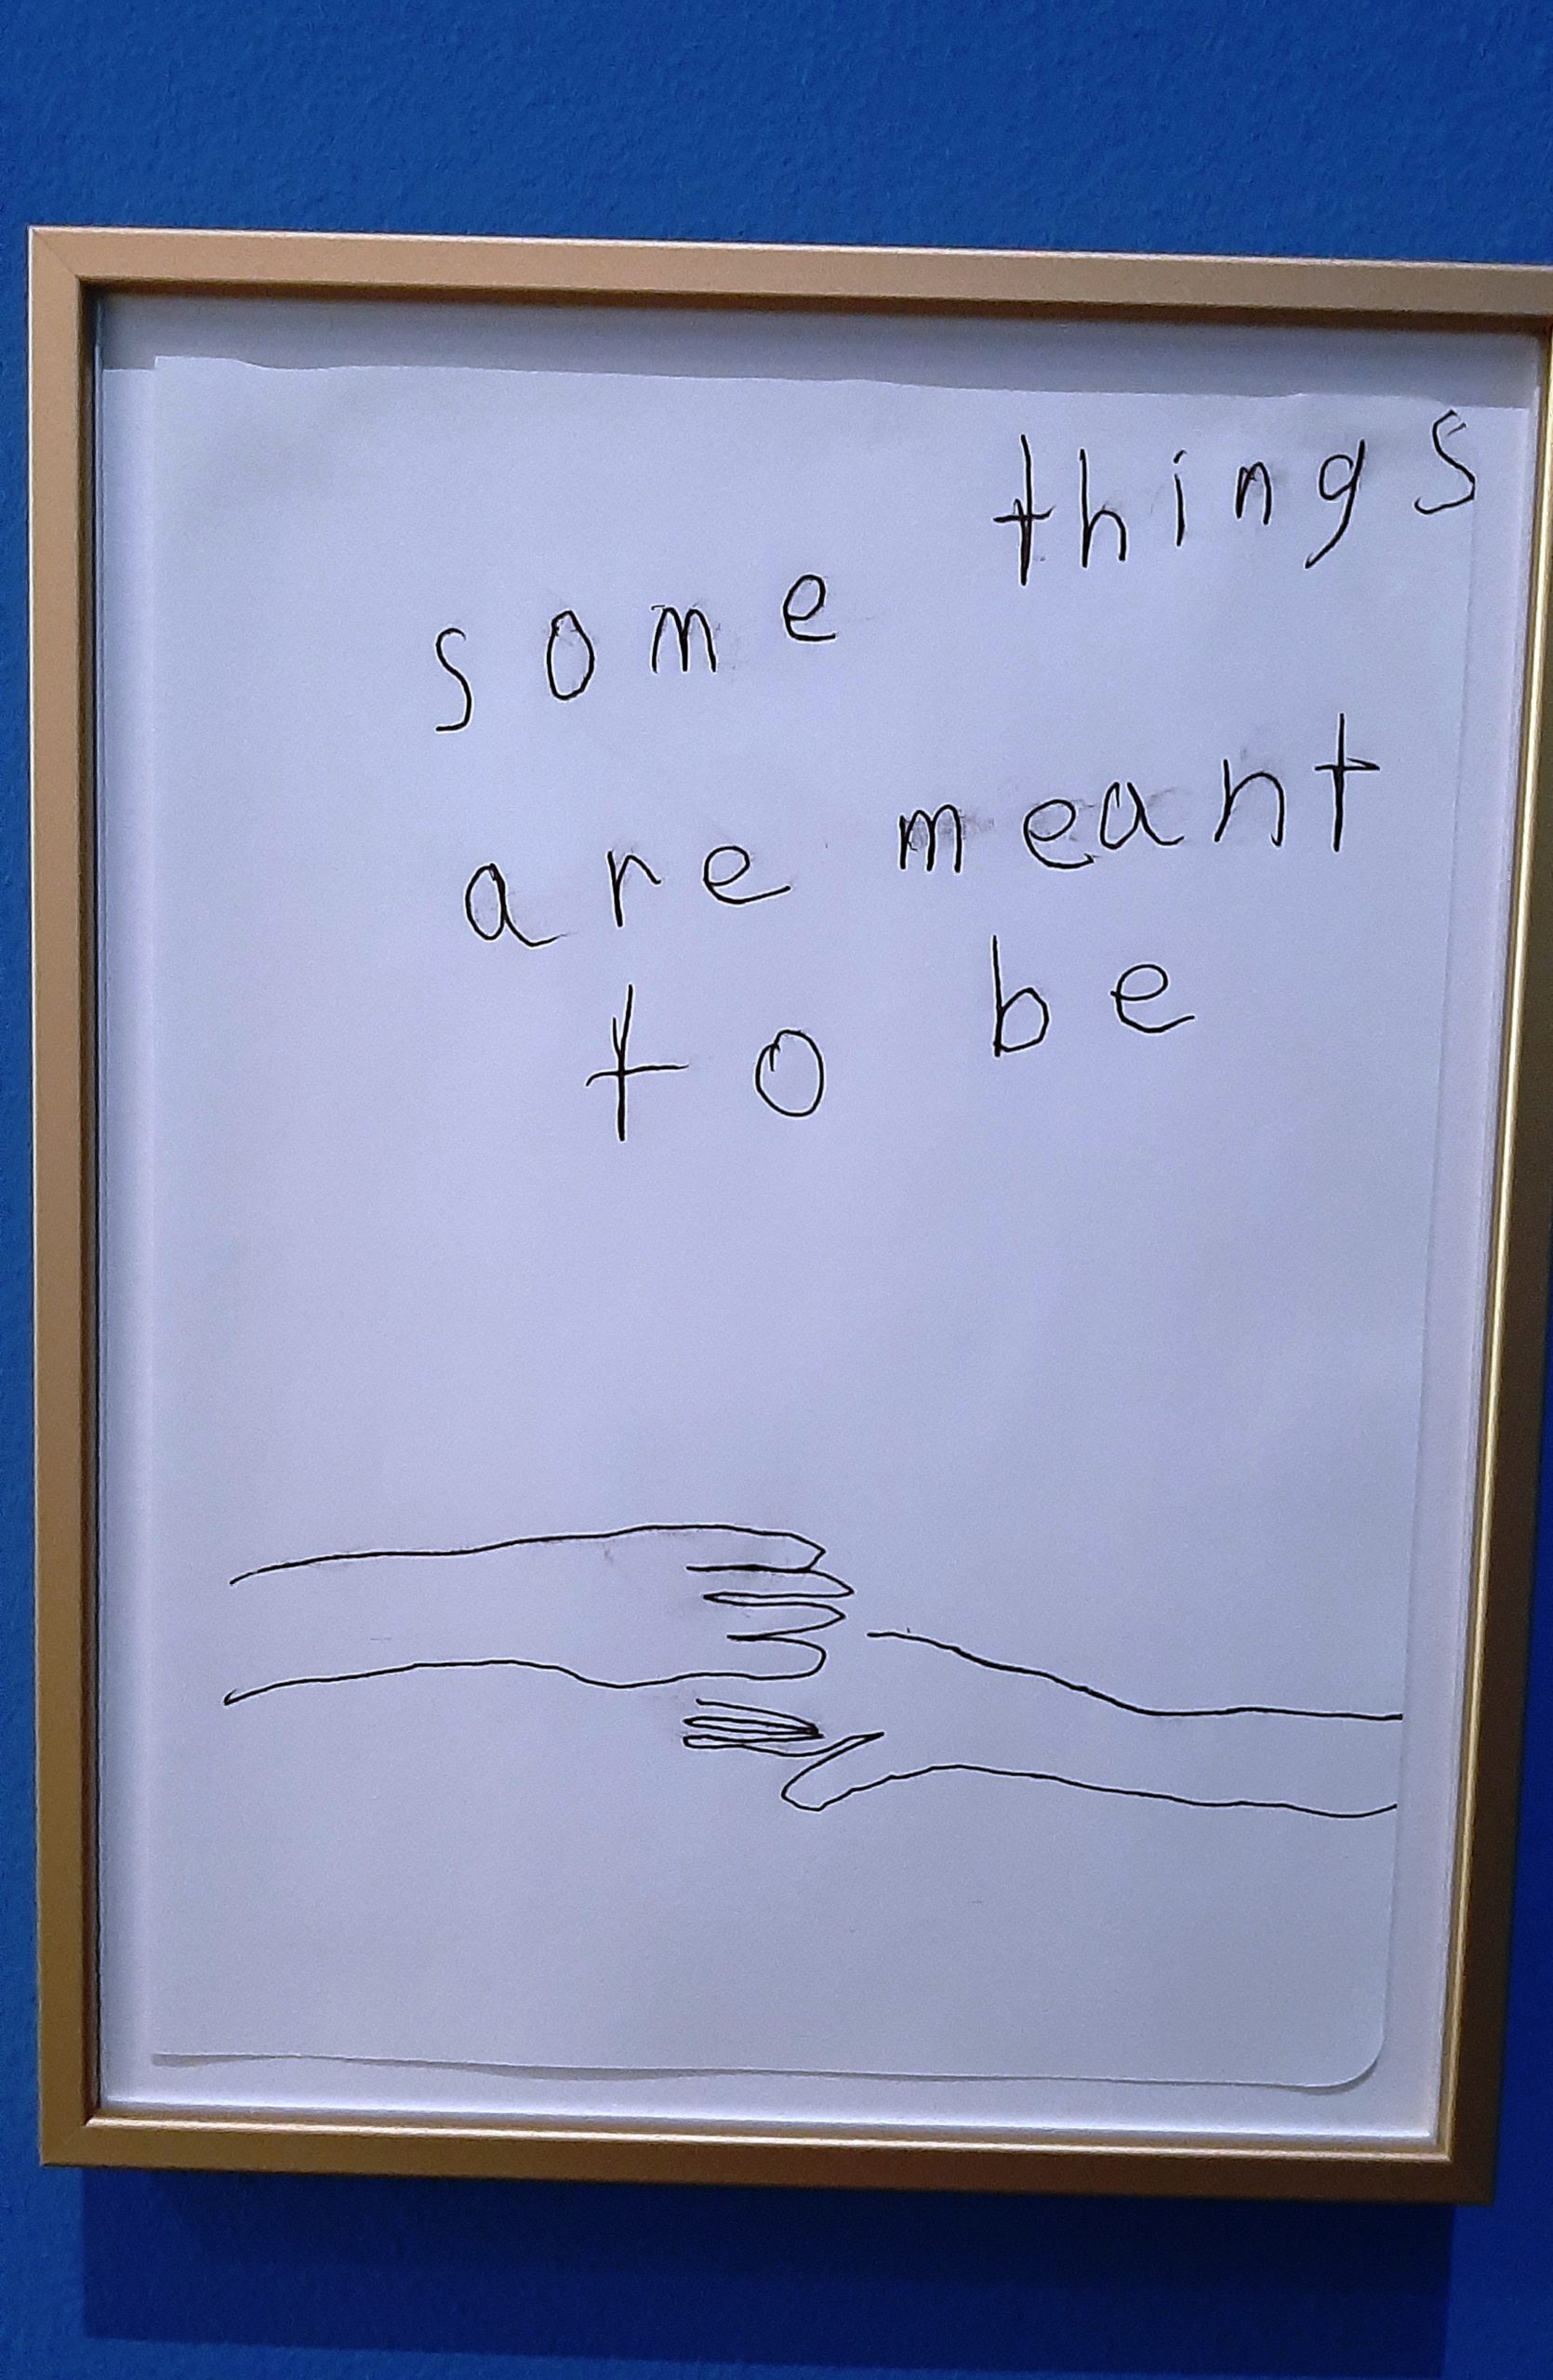 some things
are meant
to be